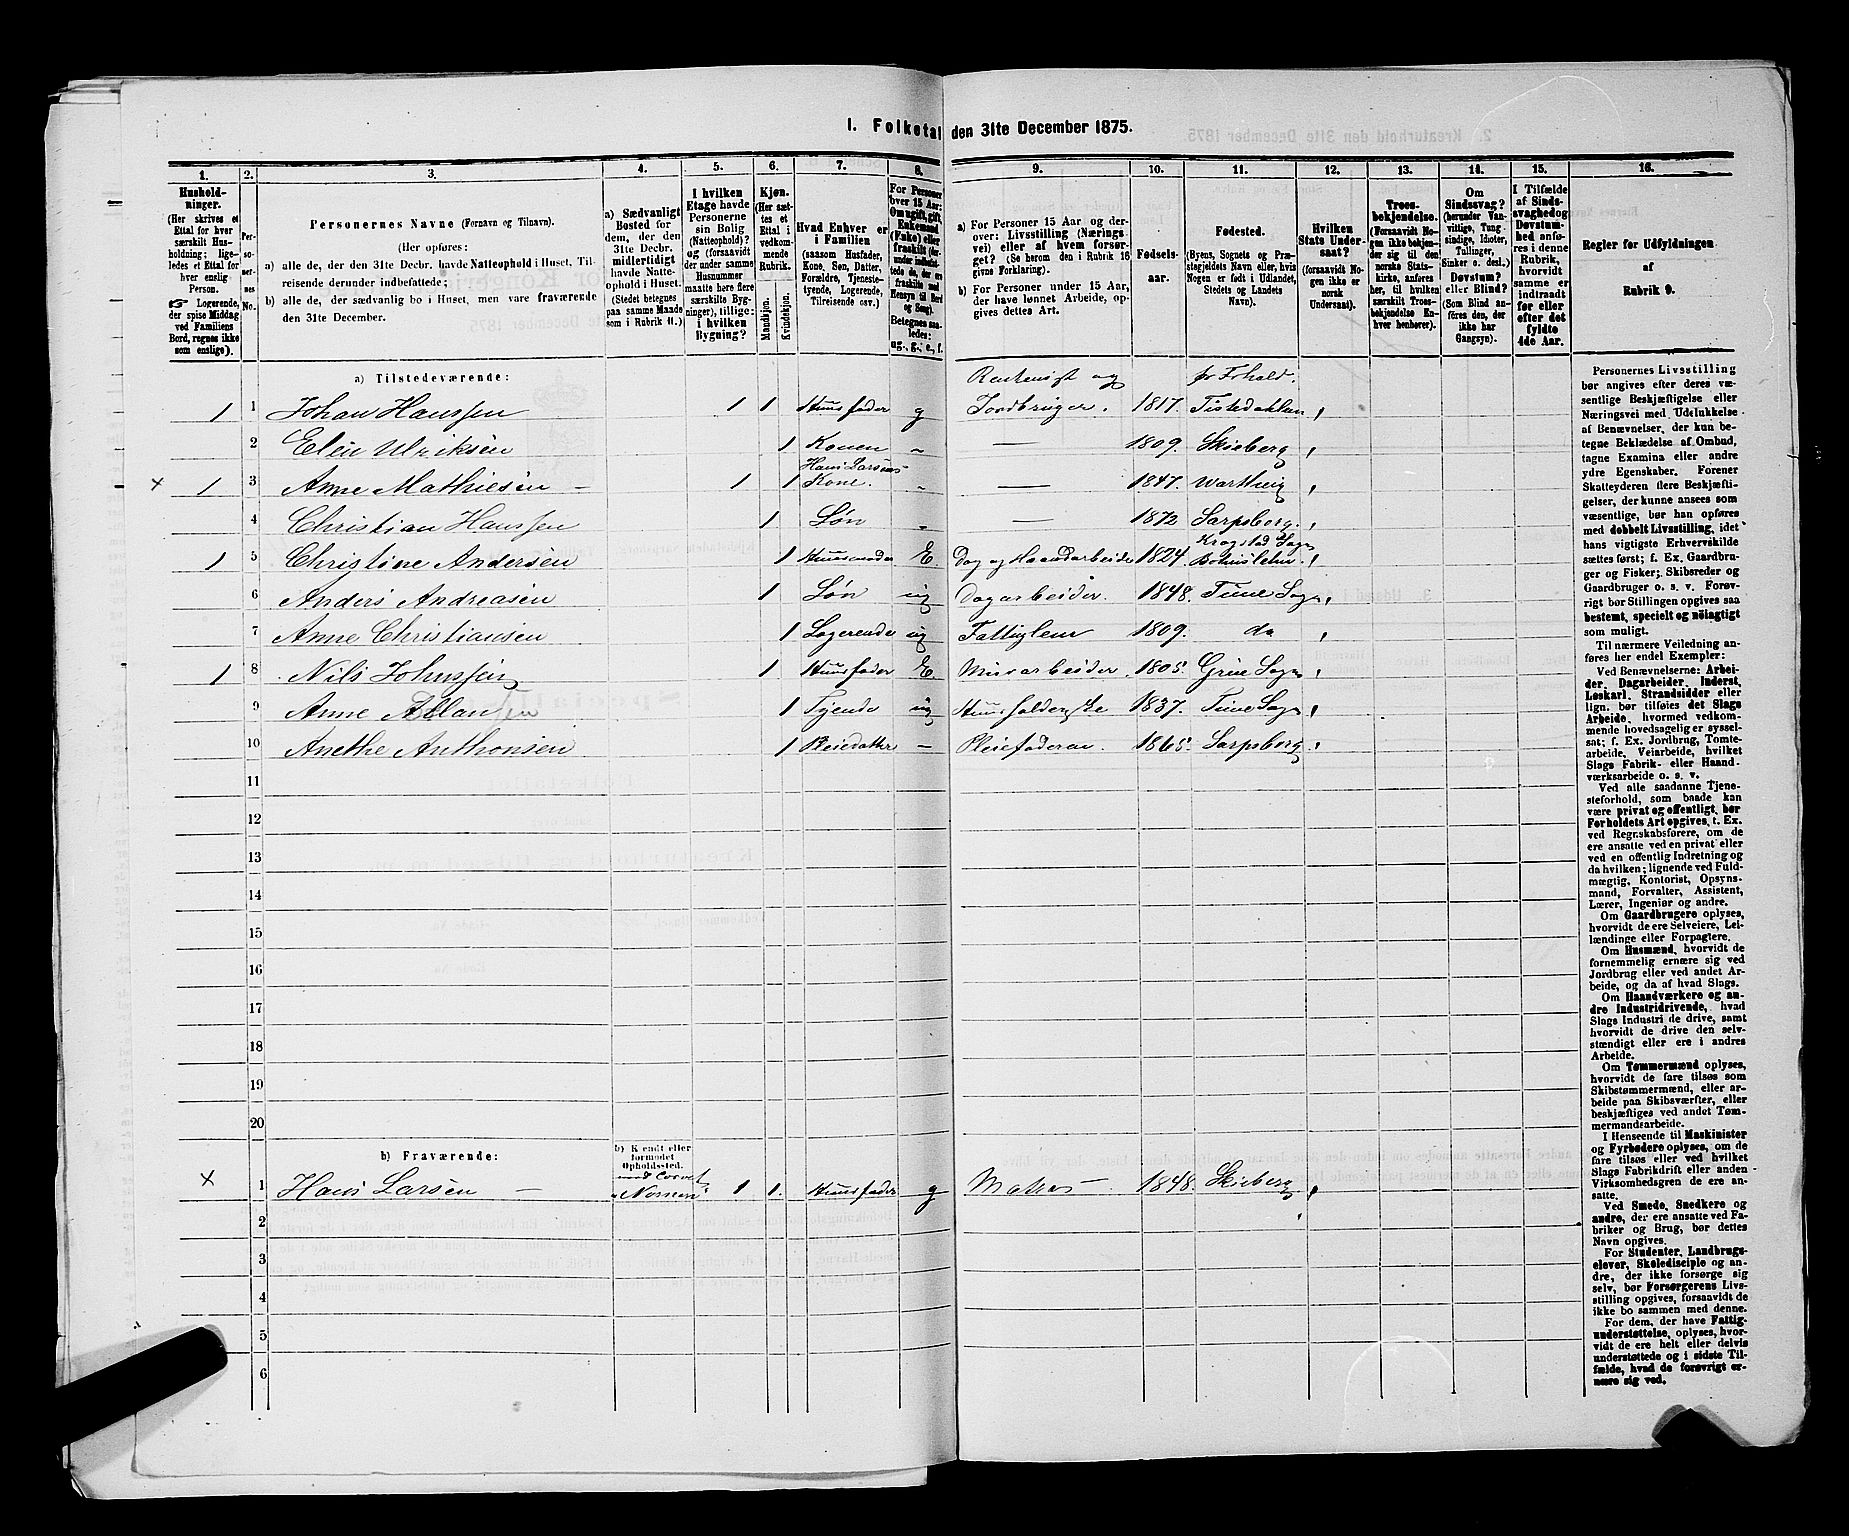 I. Folketal den 31te December 1875.
1.
Husholdninger.
(Her skrives et
Ettal for hver
særskilt Husholdning;
ligeledes et Ettal for
hver enslig
Person.
☞ Logerende,
der spise Middag
ved Familiens
Bord, regnes ikke
som enslige).
2.
Personernes
No.
3.
Personernes Navne (Fornavn og Tilnavn).
(Her opføres:
a) alle de, der den 31te Decbr. havde Natteophold i Huset, Tilreisende derunder indbefattede;
b) alle de, der sædvanlig bo i Huset, men vare fraværende
den 31te December.
4.
a) Sædvanligt
Bosted for
dem, der den
31te Decbr.
midlertidigt
havde Natteophold i Huset.
(Stedet betegnes
paa samme Maade
som i Rubrik 11.)
5.
I hvilken
Etage havde
Personerne
sin Bolig
(Natteophold)?
og (forsaavidt
der under samme
Husnummer
maatte høre flere
særskilte Bygninger), tillige:
i hvilken
Bygning?
6.
Kjøn.
(Her sættes et
Ettal i
vedkommende
Rubrik.
Mandkjøn.
Kvindekjøn.
7.
Hvad Enhver er
i Familien
(saasom Husfader,
Kone, Søn, Datter,
Forældre, Tjenestetyende, Logerende,
Tilreisende osv.)
8.
For Personer
over 15 Aar:
Om ugift, gift,
Enkemand
(Enke) eller
fraskilt
Betegnes saaledes:
ug., g., e., f.
9.
a) For Personer 15 Aar og derover: Livsstilling (Næringsvei) eller af hvem forsørget? (Se herom den i Rubrik 16
givne Forklaring).
b) For Personer under 15 Aar,
der have lønnet Arbeide, opgives dettes Art.
10.
Fødselsaar.
11.
Fødested.
(Byens, Sognets og Præstegjeldets Navn eller, hvis
Nogen er født i Udlandet,
Stedets og Landets
Navn).
12.
Hvilken
Stats Undersaat?
(forsaavidt Nogen ikke er
norsk
Undersaat).
13.
Troesbekjendelse.
(Forsaavidt Nogen ikke bekjender sig til den
norske Statskirke, anføres
her, til hvilken
særskilt Troesbekjendelse Enhver henhører).
14.
Om
Sindssvag?
(herunder Vanvittige, Tungsindige, Idioter,
Tullinger,
Sinker o. desl.)
Døvstum?
eller Blind?
(Som Blind anføres den, der
ikke har
Gangsyn).
15.
I Tilfælde
af Sindssvaghed og
Døvstumhed anføres i denne
Rubrik,
hvorvidt
samme er
indtraadt
før eller
efter det
fyldte
4de Aar.
16.
Regler for Udfyldningen
af
Rubrik 9.
a) Tilstedeværende:
1 1 Johan Hanssen 1 1 Huusfader g Jordbruger. 1817. Tistedahlen
2 Elen Ulriksen 1 Konen " — 1809. Skieberg
Hans Larsens
× 1 3 Anne Mathiesen – 1 1 Kone. " — 1847. Warteig
4 Christian Hanssen 1 Søn " — 1872 Sarpsborg.
1 5 Christine Andersen 1 Huusmoder E Dag og Haandarbeide 1824.
6 Anders Andreasen 1 Søn ug Dagarbeider. 1848. Tune Sogn
7 Anne Christiansen 1 Logerende ug Fattiglem 1809. do
1 8 Nils Johnssen 1 Huusfader E 1805. Sogn
9 Anne 1 Tyende ug Huusholderske 1837. Tune Sogn
10 Anethe Anthonsen 1 Pleiedatter — Pleiefaderen. 1865. Sarpsborg
11
12
13
14
15
16
17
18
19
20
b) Fraværende:
b) Kjendt eller
formodet
Opholdssted.
× 1 Hans Larsen – med Corvet „Nornen" 1 1. Huusfader g Matros – 1848. Skieberg
2
3
4
5
6
Personernes Livsstilling
bør angives efter deres væsentlige Beskjæftigelse eller
Næringsvei med Udelukkelse
af Benævnelser, der kun betegne Beklædelse af Ombud,
tagne Examina eller andre
ydre Egenskaber. Forener
Skatteyderen flere Beskjæftigelser, der kunne ansees som
væsentlige, bør han opføres
med dobbelt Livsstilling, idet
hans vigtigste Erhvervskilde
sættes først; f. Ex. Gaardbruger og Fisker; Skibsreder og
Gaardbruger o. s. v. Forøvrigt bør Stillingen opgives saa
bestemt, specielt og nöiagtigt
som muligt.
Til nærmere Veiledning anføres her endel Exempler:
Ved Benævnelserne: Arbeider, Dagarbeider, Inderst,
Løskarl, Strandsidder eller
lign. bør tilføies det Slags
Arbeide, hvormed vedkommende hovedsagelig er sysselsat; f. Ex. Jordbrug, Tomtearbeide, Veiarbeide, hvilket
Slags Fabrik- eller Haandværksarbeide o. s. v.
Ved alle saadanne Tjenesteforhold, som baade kan
være privat og offentligt, bør
Forholdets Art opgives, t. Ex.
ved Regnskabsførere, om de
ere ansatte ved en privat eller
ved en offentlig Indretning og
da hvilken; lignende ved Fuldmægtig, Kontorist, Opsynsmand, Forvalter, Assistent,
Lærer, Ingeniør og andre.
Om Gaardbrugere oplyses,
hvorvidt de ere Selveiere, Leilændinge eller Forpagtere.
Om Husmænd, hvorvidt de
fornemmelig ernære sig ved
Jordbrug eller ved andet Arbeide, og da af hvad Slags.
Om Haandværkere og andre Industridrivende, hvad
Slags Industri de drive, samt
hvorvidt de drive den selvstændigt eller ere i andres
Arbeide.
Om Tømmermænd oplyses,
hvorvidt de fare tilsøs som
Skibstømmermænd, eller arbeide paa Skibsværfter, eller
beskjæftiges ved andet Tømmermandsarbeide.
I Henseende til Maskinister
og Fyrbødere oplyses, om de
fare tilsøs eller ved hvilket
Slags Fabrikdrift eller anden
Virksomhedsgren de ere ansatte.
Ved Smede, Snedkere og
andre, der ere ansatte ved Fabriker og Brug, bør dettes
Navn opgives.
For Studenter, Landbrugselever, Skoledisciple og andre, der ikke forsørge sig
selv, bør Forsørgerens Livsstilling opgives, forsaavidt de
ikke bo sammen med denne.
For dem, der have Fattigunderstøttelse, oplyses, hvorvidt de ere helt eller delvis
understøttede og i sidste Tilfælde, hvad de forøvrigt ernære sig ved.